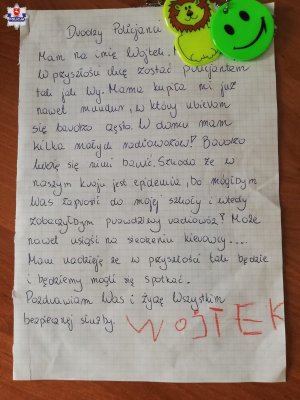 Dwodzy Policjanci
Mam na imię Wojtek.
W przyszłości chcę zostać policjantem
tak jak Wy. Mama kupiła mi już
nawet mundur, w który ubieram
się bardzo często. W domu mam
kilka małych radiowozów! Bardzo
lubię się nimi bawić. Szkoda że w
naszym kraju jest epidemia, bo mógłbym
Was zaprosić do mojej szkoły i wtedy
zobaczyłbym prawdziwy radiowóz! Może
nawet usiąść na siedzeniu kierowcy....
Mam nadzieję że w przyszłości tak będzie
i będziemy mogli się spotkać.
Pozdrawiam Was i życzę Wszystkim
bezpiecznej służby.
WOJTEK